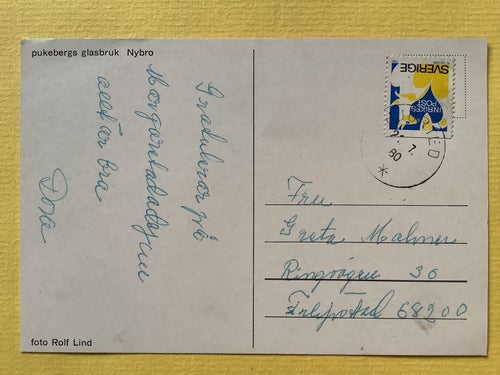 pukebergs glasbruk Nybro
Gratulerar på
Margaretadagen
allt är bra
Dora
foto Rolf Lind
SVERIGE
INRIKES
POST
7.
80
Fru
Greta Malmer
Ringvägen 30
Filipstad 68200